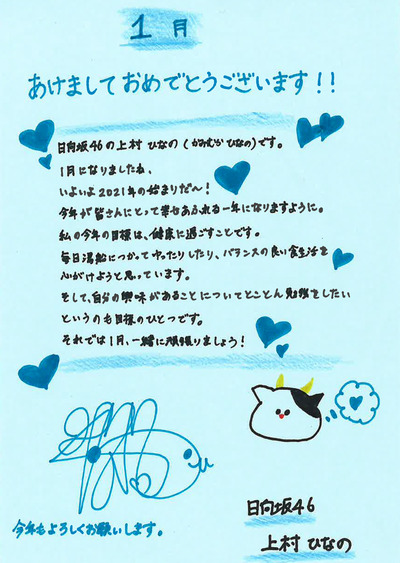 1月
あけましておめでとうございます!!
日向坂46の上村ひなの(かみむらひなの)です。
1月になりましたね、
いよいよ2021年の始まりだ〜!
今年が皆さんにとって幸せあふれる一年になりますように。
私の今年の目標は、健康に過ごすことです。
毎日湯船につかってゆったりしたり、バランスの良い食生活を
心がけようと思っています。
そして、自分の興味があることについてとことん勉強をしたい
というのも目標のひとつです。
それでは1月、一緒に頑張りましょう!
今年もよろしくお願いします。
日向坂46
上村ひなの